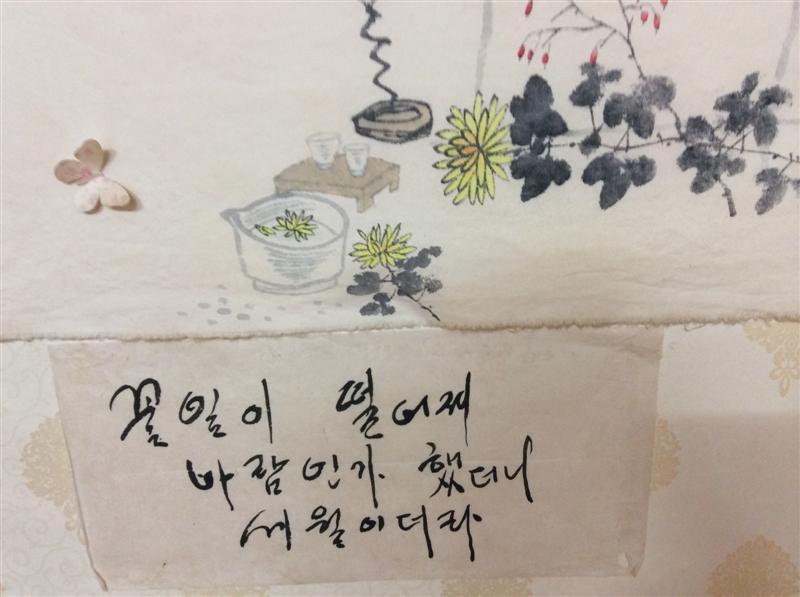 꽃일이 떨어져
바람인가 했더니
세월이더라